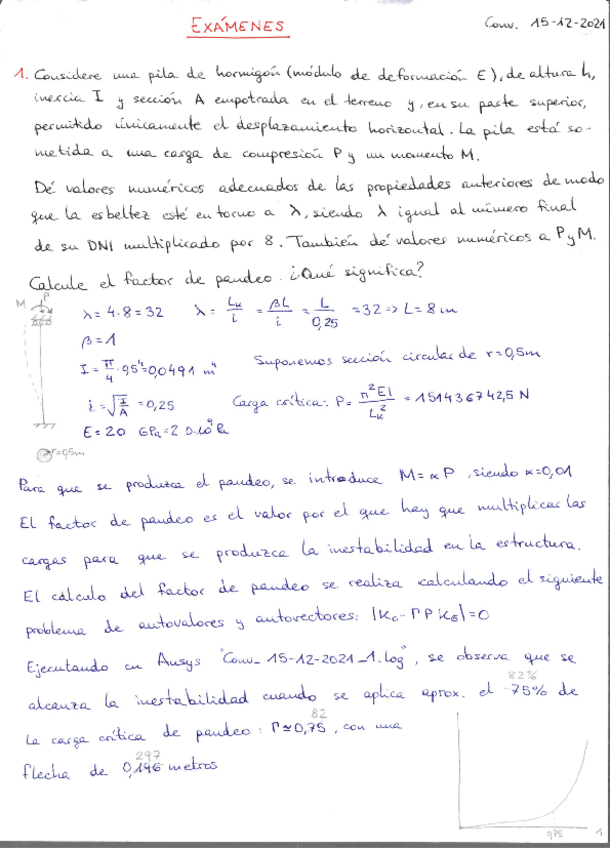 EXÁMENES
Conv. 15-12-2021
1. Considere una pila de hormigón (módulo de deformación E), de altura h,
inercia I y sección A empotrada en el terreno y, en su parte superior,
permitido únicamente el desplazamiento horizontal. La pila está so-
metida a una carga de compresión P y un momento M.
Dé valores numéricos adecuados de las propiedades anteriores de modo
que la esbeltez esté en torno a λ, siendo λ igual al número final
de su DNI multiplicado por 8. También dé valores numéricos a P y M.
Calcule el factor de pandeo. ¿Qué significa?
M P
λ = 4·8 = 32 λ = Lk/i = βL/i = L/0,25 = 32 => L = 8 m
β = 1
I = π/4 · 0,5⁴ = 0,0491 m⁴ Suponemos sección circular de r = 0,5m
i = √(I/A) = 0,25 Carga crítica: P = π²EI/Lk² = 151436742,5 N
E = 20 GPa = 2 0·10⁹ Pa
r=0,5m
Para que se produzca el pandeo, se introduce M = αP, siendo α = 0,01
El factor de pandeo es el valor por el que hay que multiplicar las
cargas para que se produzca la inestabilidad en la estructura.
El cálculo del factor de pandeo se realiza calculando el siguiente
problema de autovalores y autovectores: |K₀ - ΓP KG| = 0
Ejecutando en Ansys "Conv_15-12-2021_1.log", se observa que se
82%
alcanza la inestabilidad cuando se aplica aprox. el 75% de
82
la carga crítica de pandeo: Γ ≃ 0,75, con una
297
flecha de 0,196 metros
0,75
1